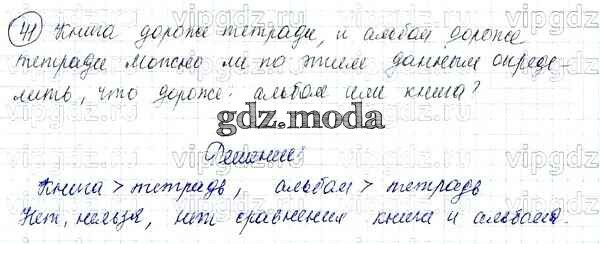 41 Книга дороже тетради, и альбом дороже
тетради. Можно ли по этим данным опреде-
лить, что дороже: альбом или книга?
gdz.moda
Решение:
Книга > тетрадь, альбом > тетрадь
Нет, нельзя, нет сравнения книга и альбома.